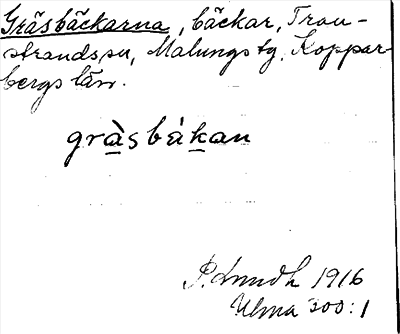 Gräsbäckarna, bäckar, Tran-
strands sn, Malungs tg, Koppar-
bergs län.
gràsbákan
P. Lindh 1916
Ulma 300:1